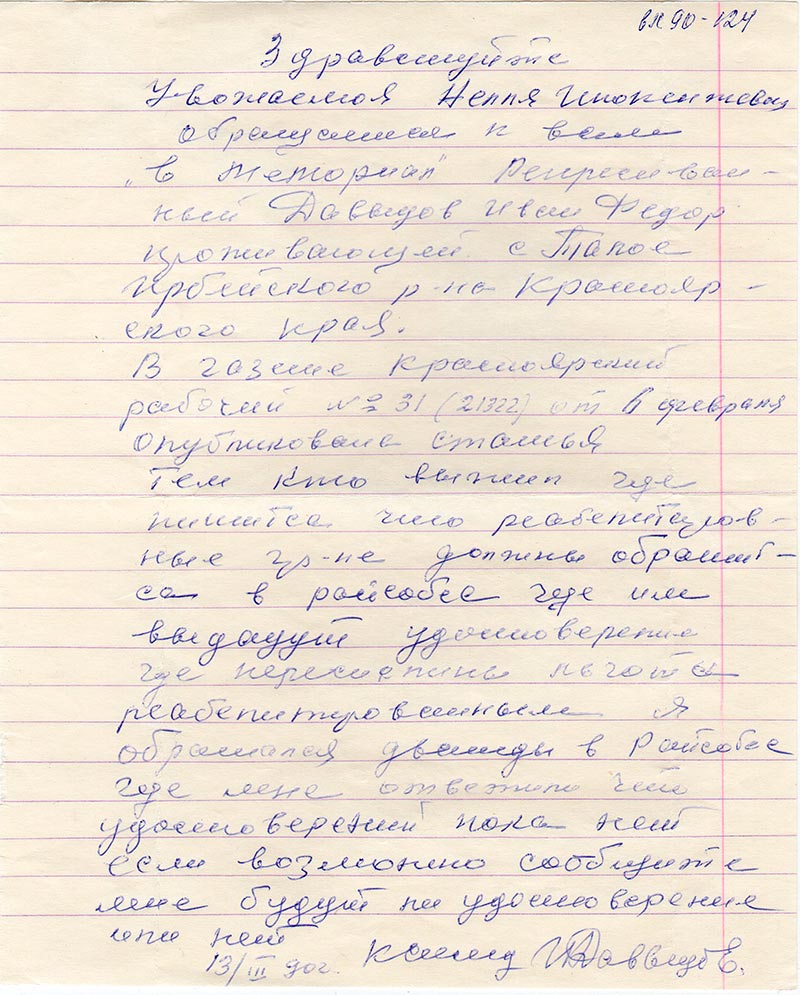 вх 90-124
Здравствуйте
Уважаемоя Нелля Инокентьевна
обращаится к вам
"в Меториал" Репресиван-
ный Давыдов Иван Федор
проживающий с Талое
Ирбейского р-на Краснояр-
ского края.
В газете Красноярский
рабочий № 31 (21322) от 6 февраля
опубликована статья
Тем кто выжил где
пишится что реабелитиров-
ные гр-не должны обратит-
са в райсобес где им
выдадут удостоверение
где перечислины льгота
реабелитированным я
обращался дважды в Райсобес
где мне ответили что
удостоверений пока нет
если возможно сообщите
мне будут ли удостоверения
или нет
13/III 90г. И Давыдов.